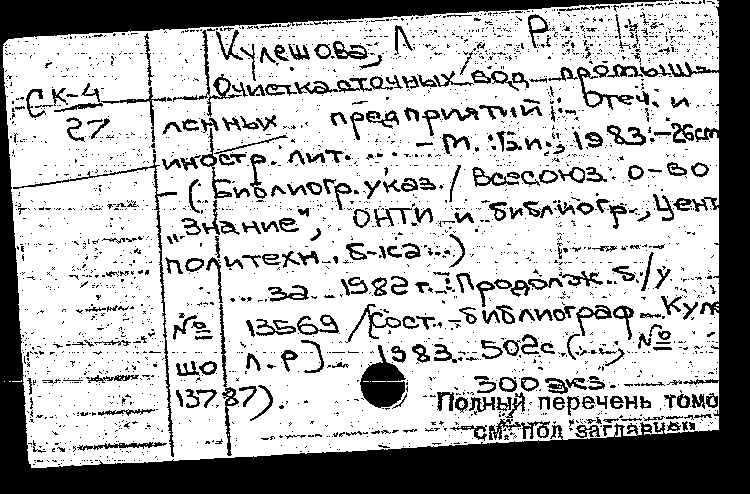 Кулешова, Л Р
СК-4
27
Очистка сточных вод промыш-
ленных предприятий: Отеч. и
иностр. лит. ... - М.: Б.и., 1983.-26см
- (Библиогр. указ. / Всесоюз. о-во
„Знание", ОНТИ и библиогр., Цент
политехн. б-ка...)
... за 1982 г.: Продолж. б/у
№ 13569 / [Сост.-библиограф Куле
шо Л.Р]. 1983. 502с (...; №
13787). 300 экз.
Полный перечень томо
см. под заглавием